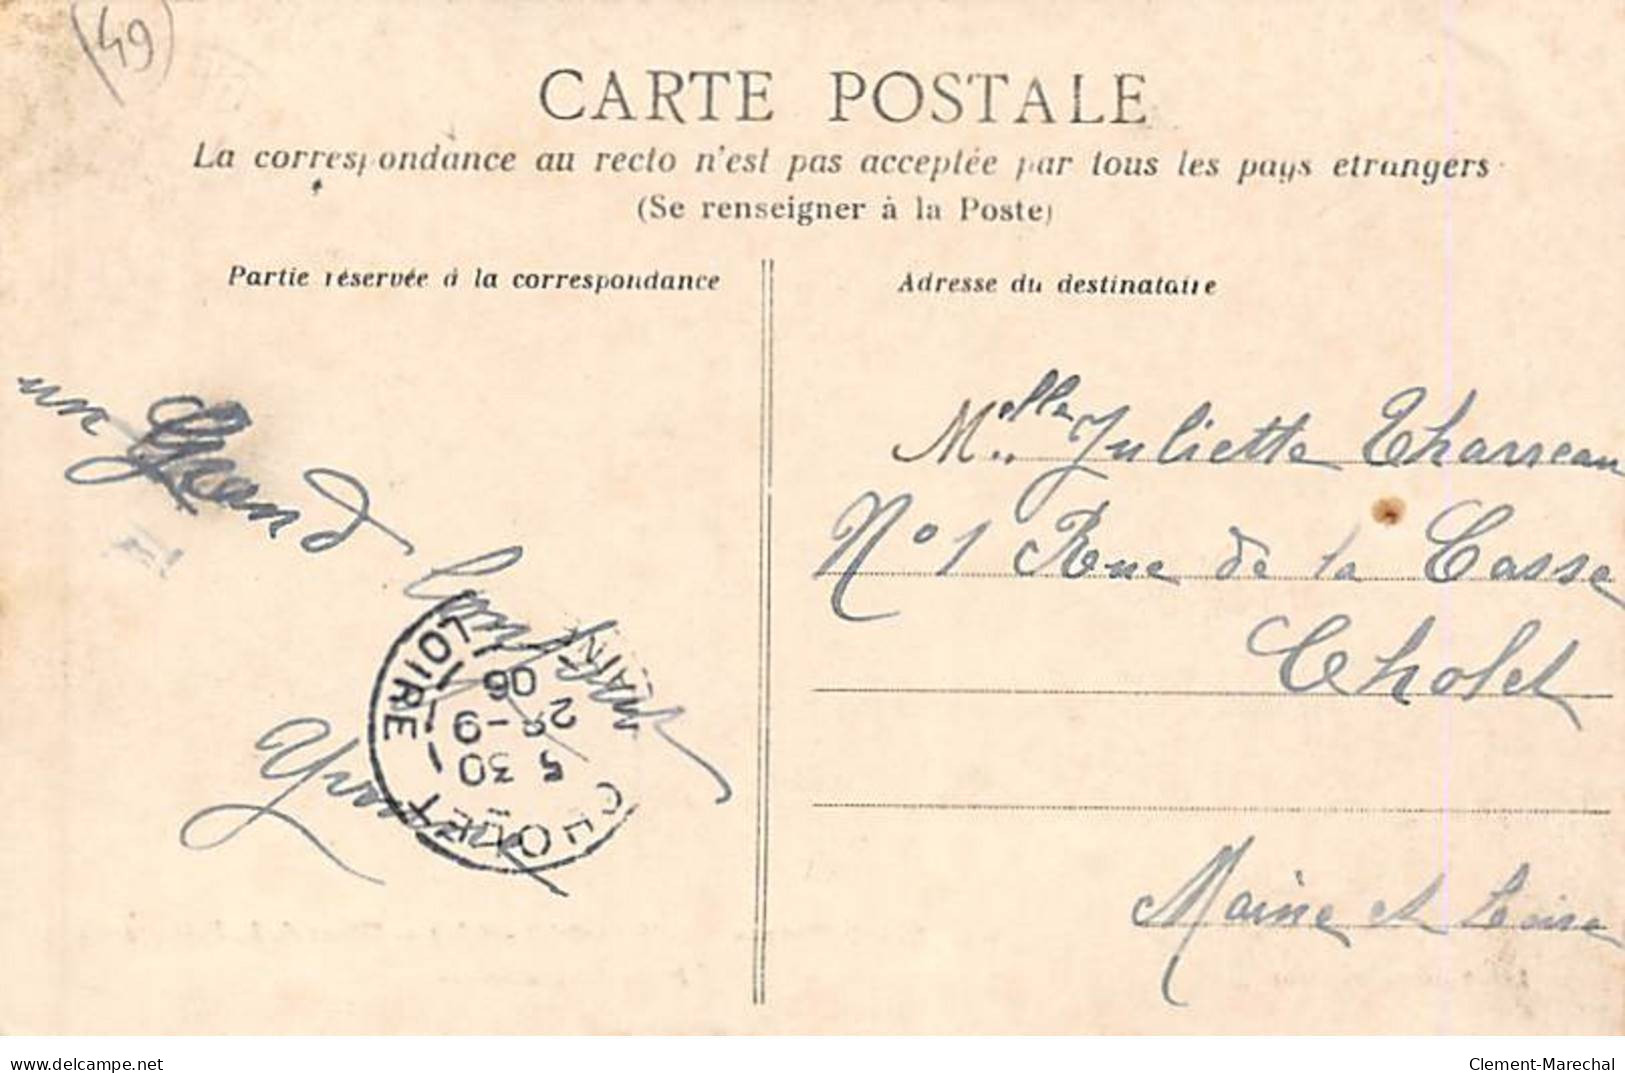 (49)
CARTE POSTALE
La correspondance au recto n'est pas acceptée par tous les pays etrangers
(Se renseigner à la Poste)
Partie réservée à la correspondance
Adresse du destinataire
un Grand
Yvonne
CHOLET
MAINE
LOIRE
5 30
2 -9
06
Melle Juliette Tharreau
N° 1 Rue de la Casse
Cholet
Maine et Loire
delcampe.net
Clement-Marechal